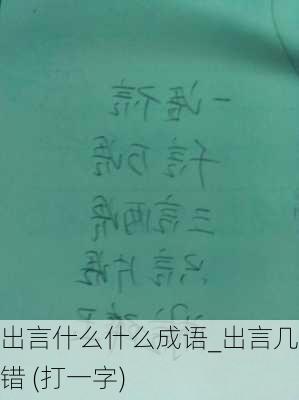 一语不言
千言万语
三言两语
只言片语
出言什么什么成语_出言几
错 (打一字)